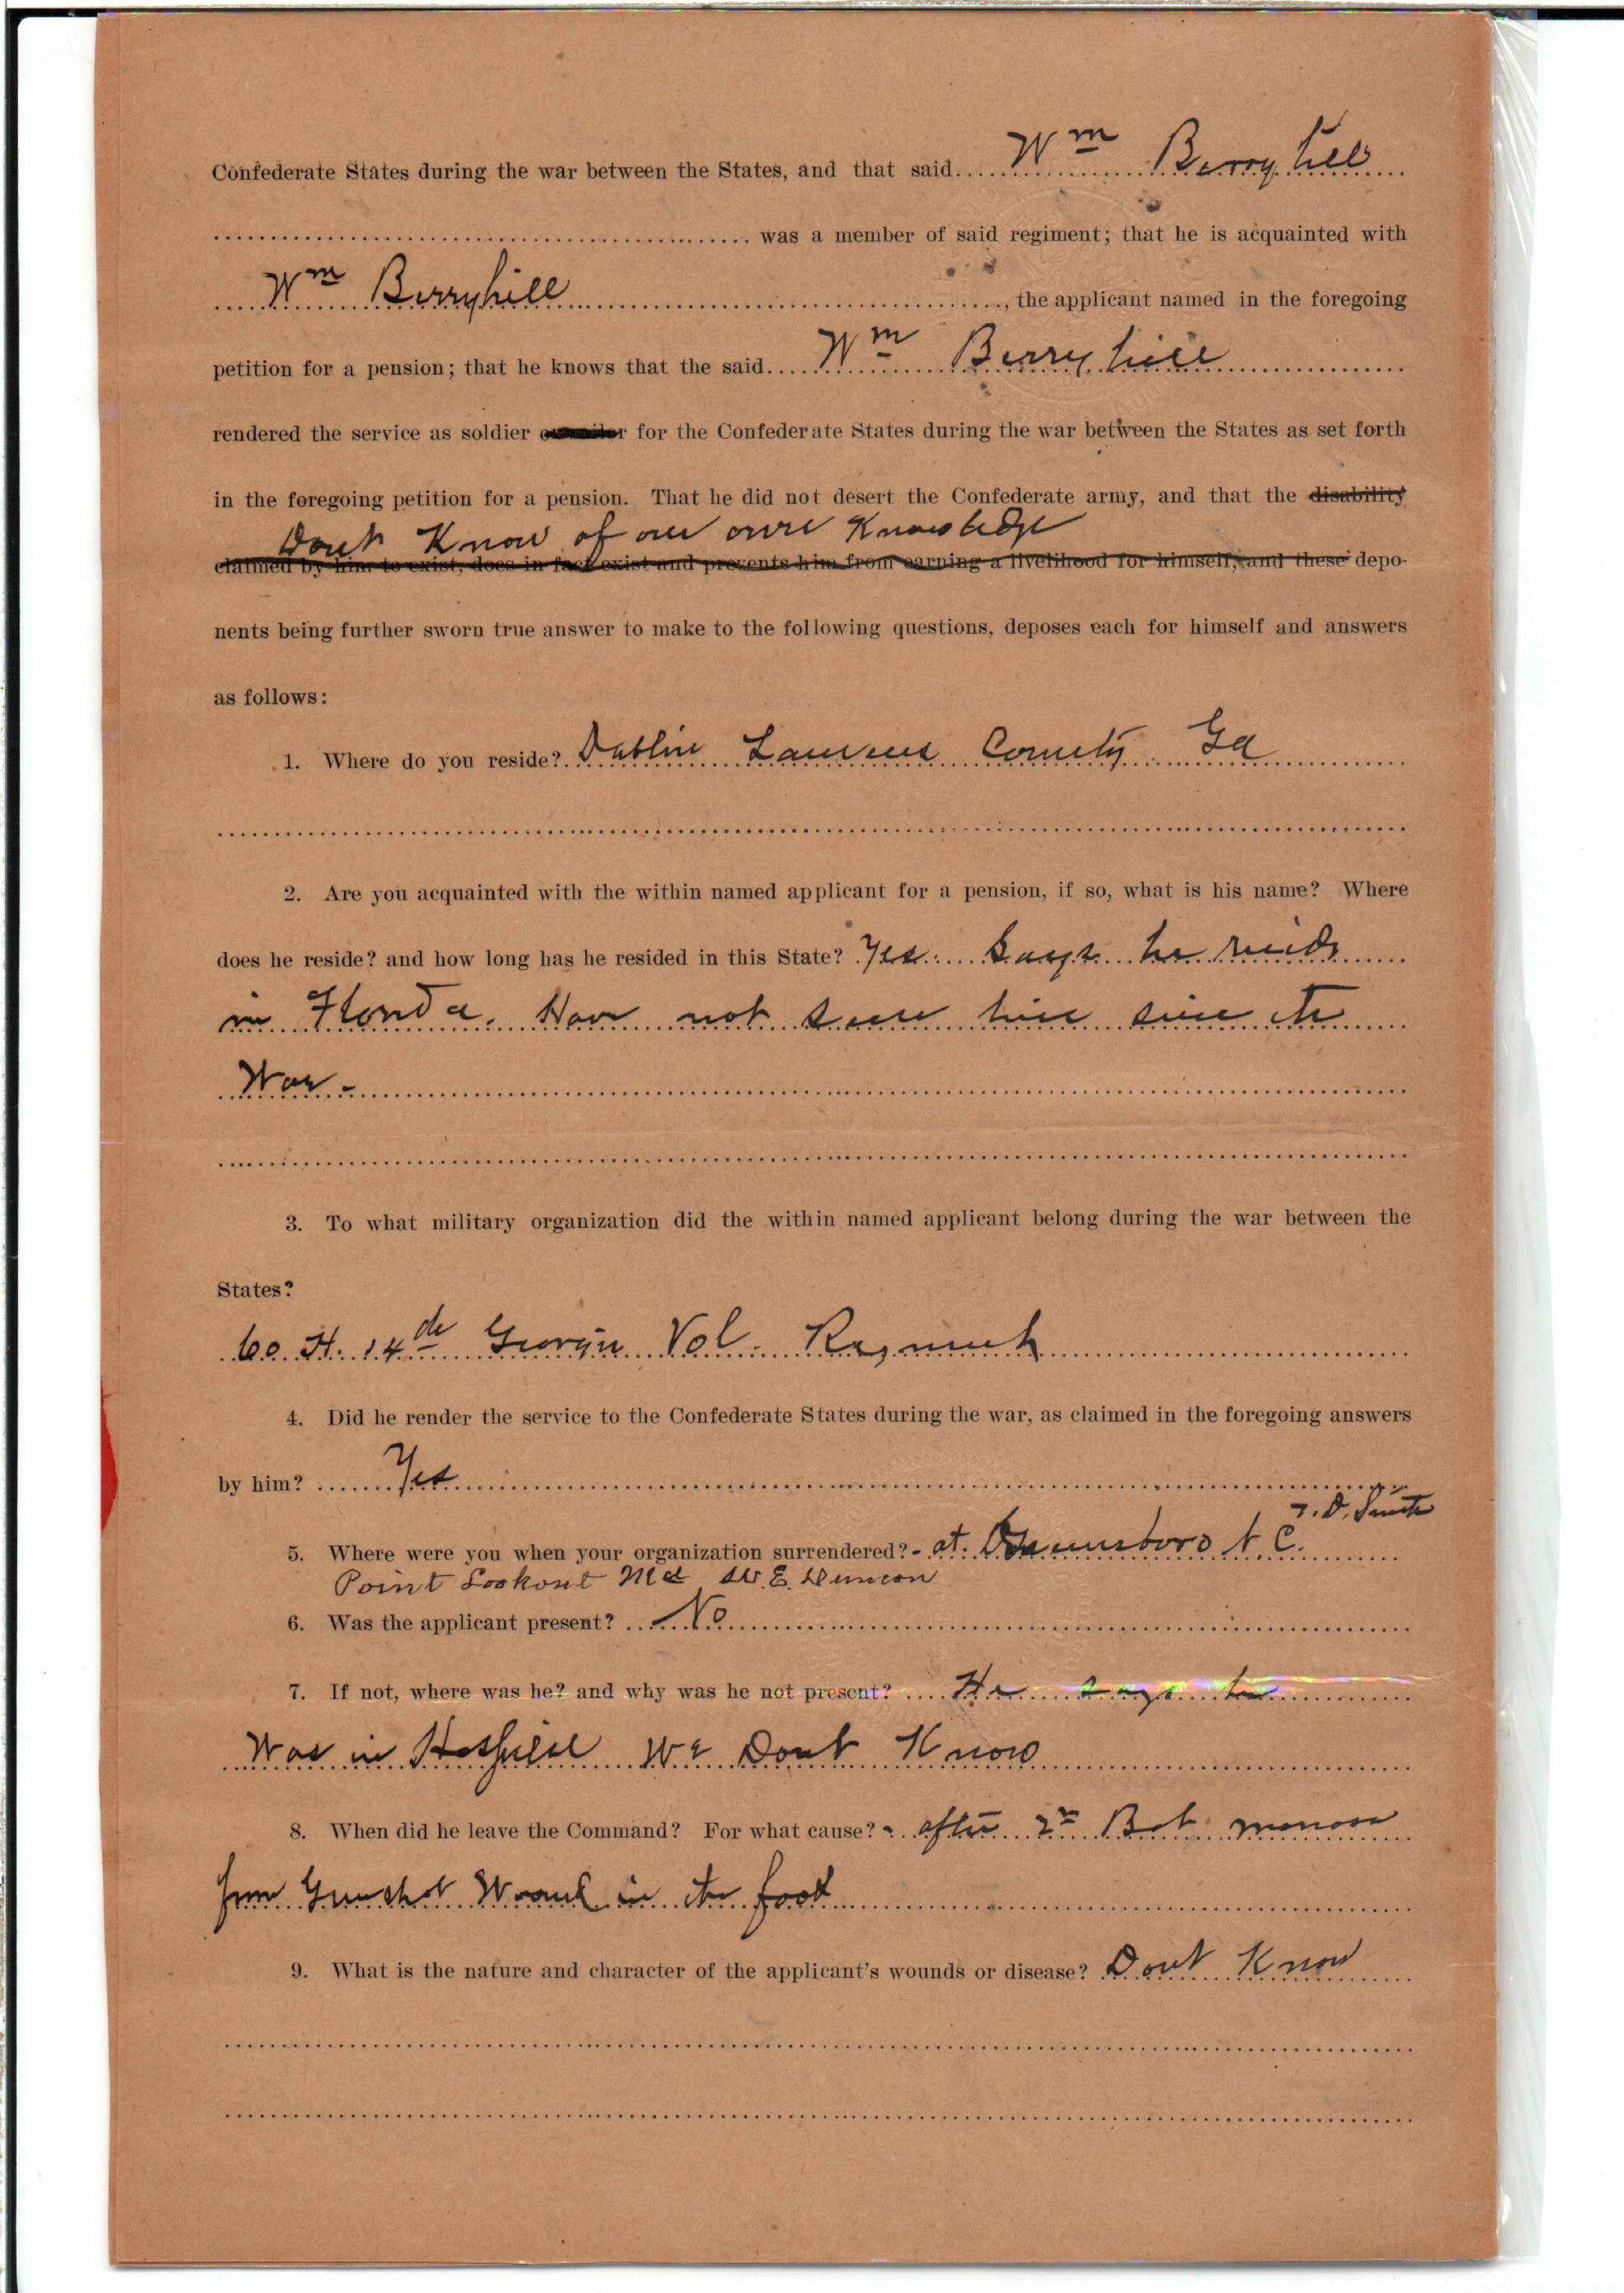 Confederate States during the war between the States, and that said Wm Berryhill
was a member of said regiment; that he is acquainted with
Wm Berryhill, the applicant named in the foregoing
petition for a pension; that he knows that the said Wm Berryhill
rendered the service as soldier for the Confederate States during the war between the States as set forth
in the foregoing petition for a pension. That he did not desert the Confederate army, and that the disability
Dont Know of our own Knowledge
claimed by him to exist, does in fact exist and prevents him from earning a livelihood for himself, and these depo-
nents being further sworn true answer to make to the following questions, deposes each for himself and answers
as follows:
1. Where do you reside? Dublin Laurens County Ga
2. Are you acquainted with the within named applicant for a pension, if so, what is his name? Where
does he reside? and how long has he resided in this State? Yes. Says he resids
in Florida. Have not seen him since the
War -
3. To what military organization did the within named applicant belong during the war between the
States?
Co. H. 14th Georgia Vol. Regment
4. Did he render the service to the Confederate States during the war, as claimed in the foregoing answers
by him? Yes
D. Smith
5. Where were you when your organization surrendered? - at Greensboro N. C.
Point Lookout Md W. E. Duncan
6. Was the applicant present? No
7. If not, where was he? and why was he not present? He says he
Was in Hospital We Dont Know
8. When did he leave the Command? For what cause? - after 2n Bat manassa
from Gunshot Wound in the foot
9. What is the nature and character of the applicant's wounds or disease? Dont Know